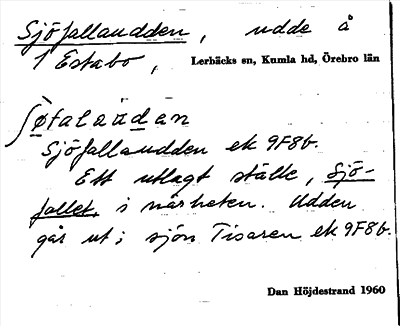 Sjöfallaudden, udde å
1 Estabo, Lerbäcks sn, Kumla hd, Örebro län
ʃø̀falaùdan
Sjöfallaudden ek 9F8b.
Ett utlagt ställe, Sjö-
fallet, i närheten. Udden
går ut i sjön Tisaren ek 9F8b.
Dan Höjdestrand 1960